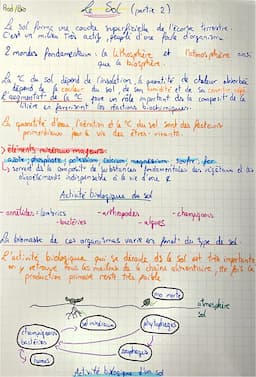 Pod/Bio
Le Sol (partie 2)
Le sol forme une couche superficielle de l'écorce terrestre.
C'est un milieu très actif, peuplé d'une foule d'organisme
2 mondes fondamentaux : la lithosphère et l'atmosphère ainsi
que la biosphère.
La °C du sol dépend de l'insolation, la quantité de chaleur absorbée
dépend de la couleur du sol, de son humidité et de sa
L'augmentat° de la °C joue un rôle important ds la composit° de la
litière en favorisant les réactions biochimiques.
La quantité d'eau, l'aération et la °C du sol sont des facteurs
primordiaux pour la vie des êtres vivants.
éléments minéraux majeurs:
azote, phosphate, potassium, calcium, magnésium, soufre, fer
↳ servent ds la composit° de substances fondamentales des végétaux et les
oligoéléments indispensable à la vie d'une
Activité biologique du sol
- annélides : lombrics - arthropodes - champignons
- bactéries - algues
La biomasse de ces organismes varie en fonct° du type de sol.
L'activité biologique qui se déroule ds le sol est très importante
on y retrouve tous les maillons de la chaîne alimentaire,
production primaire reste très faible
atmosphère
sol
sol minéraux
phytophages
champignons
bactéries
humus
zoophages
Activité biologique d'un sol